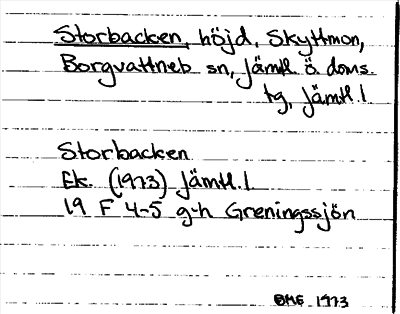 Storbacken, höjd, Skyttmon,
Borgvattneb sn, Jämtl. ö doms.
tg, Jämtl. l
Storbacken
Ek. (1973) Jämtl. l
19 F 4-5 g-h Greningssjön
BME 1973